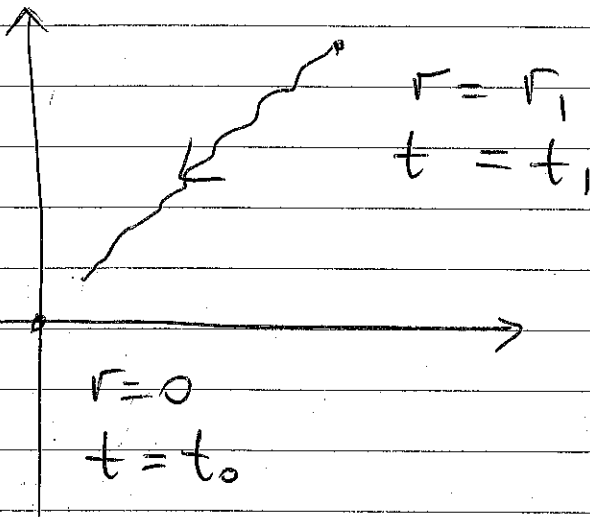 r = r₁
t = t₁
r=0
t = t₀